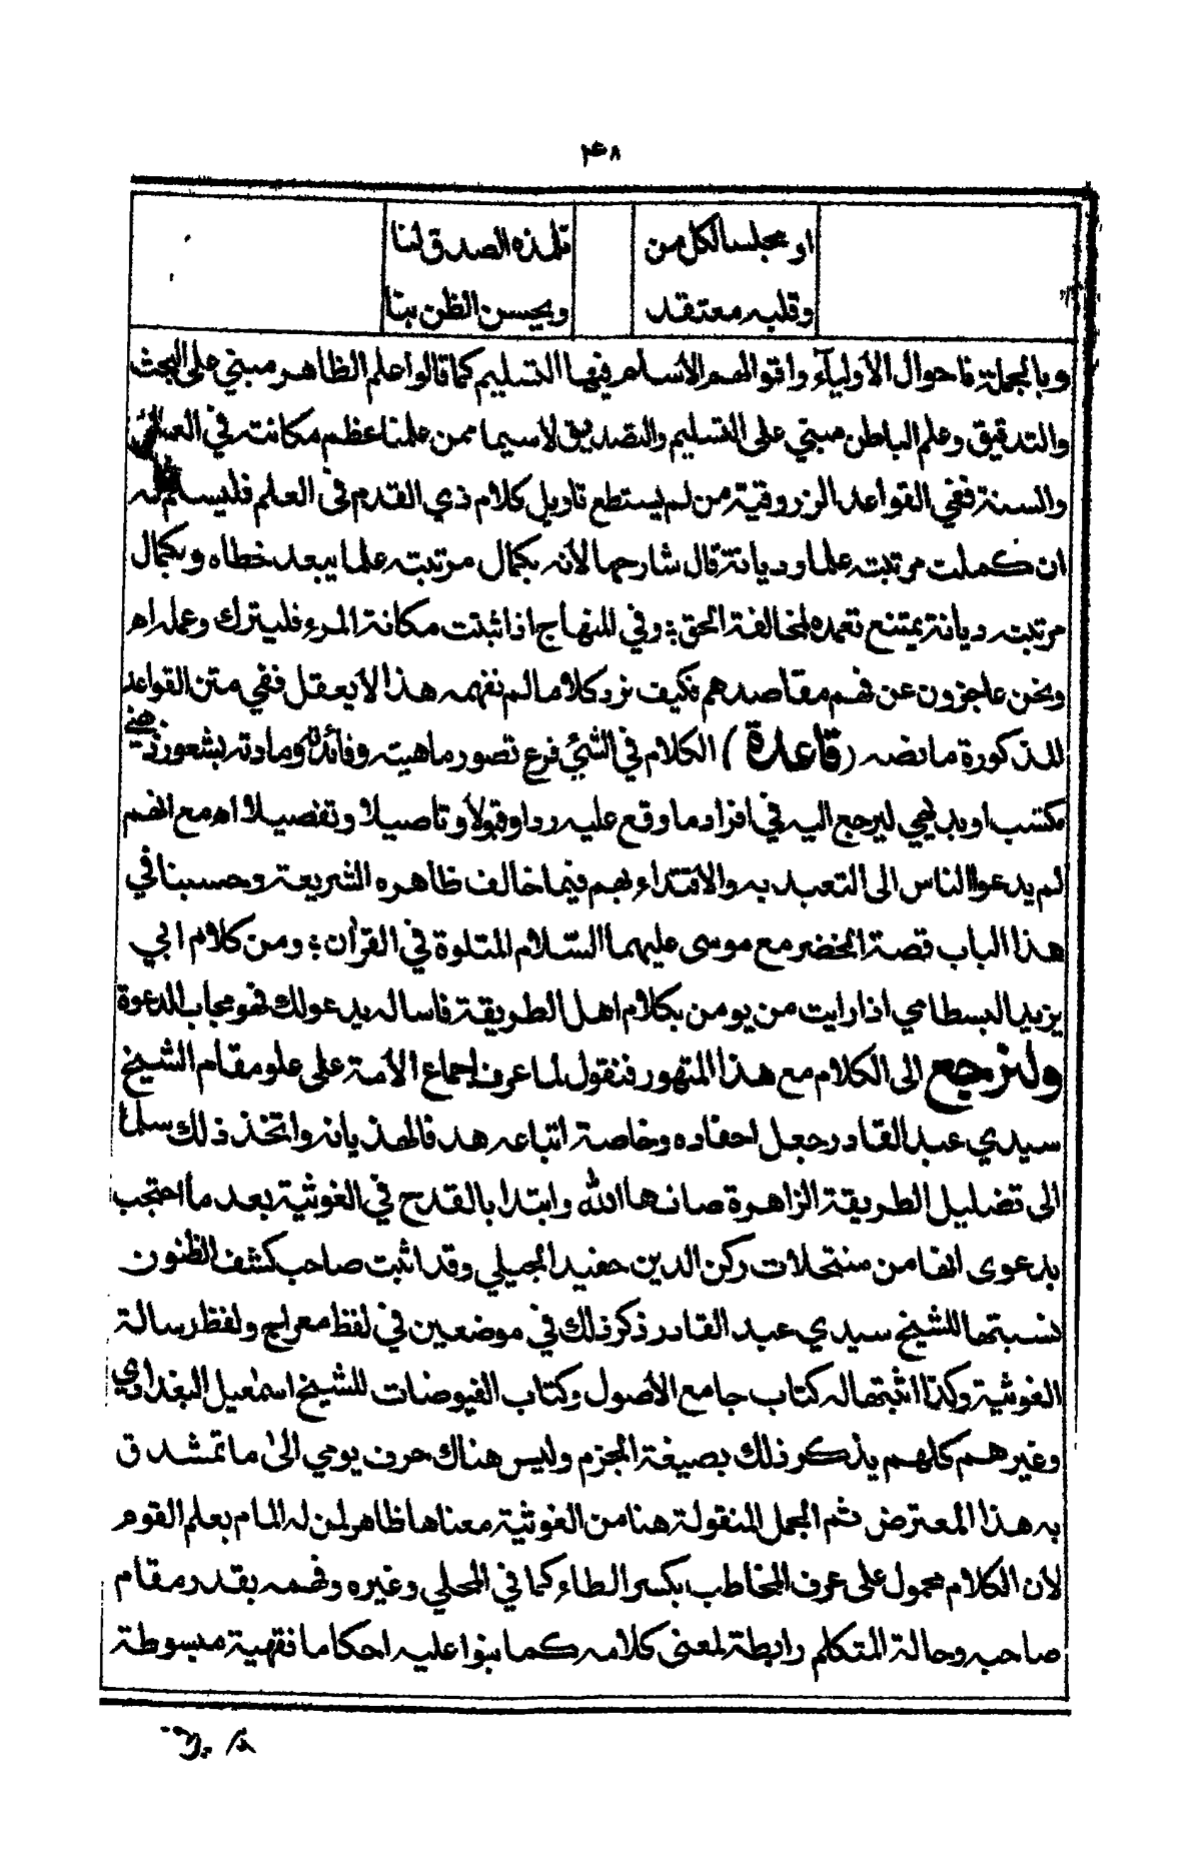 ٤٨
او مجلسا لكل من تلمذه الصدق لنا
وقلبه معتقد ويحسن الظن بنا
وبالجملة فاحوال الأوليآء واقوالهم الأسلم فيها التسليم كما قالوا علم الظاهر مبني على البحث
والتدقيق وعلم الباطن مبني على التسليم والتصديق لاسيما ممن علمنا عظم مكانته في العلم
والسنة ففي القواعد الزروقية من لم يستطع تاويل كلام ذي القدم في العلم فليسلم له
ان كملت مرتبته علما وديانة قال شارحها لأنه بكمال مرتبته علما يبعد خطاه وبكمال
مرتبته ديانة يمتنع تعمده لمخالفة الحق؛ وفي المنهاج اذا ثبتت مكانة المرء فليترك وعمله اه
ونحن عاجزون عن فهم مقاصدهم فكيف نرد كلاما لم نفهمه هذا لا يعقل ففي متن القواعد
المذكورة ما نصه (قاعدة) الكلام في الشئ فرع تصور ماهيته وفائدته ومادته بشعور ذهني
مكتسب او بديهي ليرجع اليه في افراد ما وقع عليه ردا وقبولا وتاصيلا وتفصيلا اه مع انهم
لم يدعوا الناس الى التعبد به والاقتداء بهم فيما خالف ظاهره الشريعة وحسبنا في
هذا الباب قصة الخضر مع موسى عليهما السلام المتلوة في القران؛ ومن كلام ابي
يزيد البسطامي اذا رايت من يومن بكلام اهل الطريقة فاساله يدعو لك فهو مجاب الدعوة
ولنرجع الى الكلام مع هذا المتهور فنقول لما عرف اجماع الأمة على علو مقام الشيخ
سيدي عبد القادر جعل احفاده وخاصة اتباعه هدفا لهذيانه واتخذ ذلك سلما
الى تضليل الطريقة الزاهرة صانها الله وابتدا بالقدح في الغوثية بعد ما احتجب
بدعوى انها من منتحلات ركن الدين حفيد الجيلي وقد اثبت صاحب كشف الظنون
نسبتها للشيخ سيدي عبد القادر ذكر ذلك في موضعين في لفظ معراج ولفظ رسالة
الغوثية وكذا اثبتها له كتاب جامع الأصول وكتاب الفيوضات للشيخ اسمعيل البغدادي
وغيرهم كلهم يذكر ذلك بصيغة الجزم وليس هناك حرف يومي الى ما تمشدق
به هذا المعترض ثم الجمل المنقولة هنا من الغوثية معناها ظاهر لمن له المام بعلم القوم
لان الكلام محمول على عرف المخاطب بكسر الطاء كما في المحلي وغيره وفهمه بقدر مقام
صاحبه وحالة المتكلم رابطة لمعنى كلامه كما بنوا عليه احكاما فقهية مبسوطة